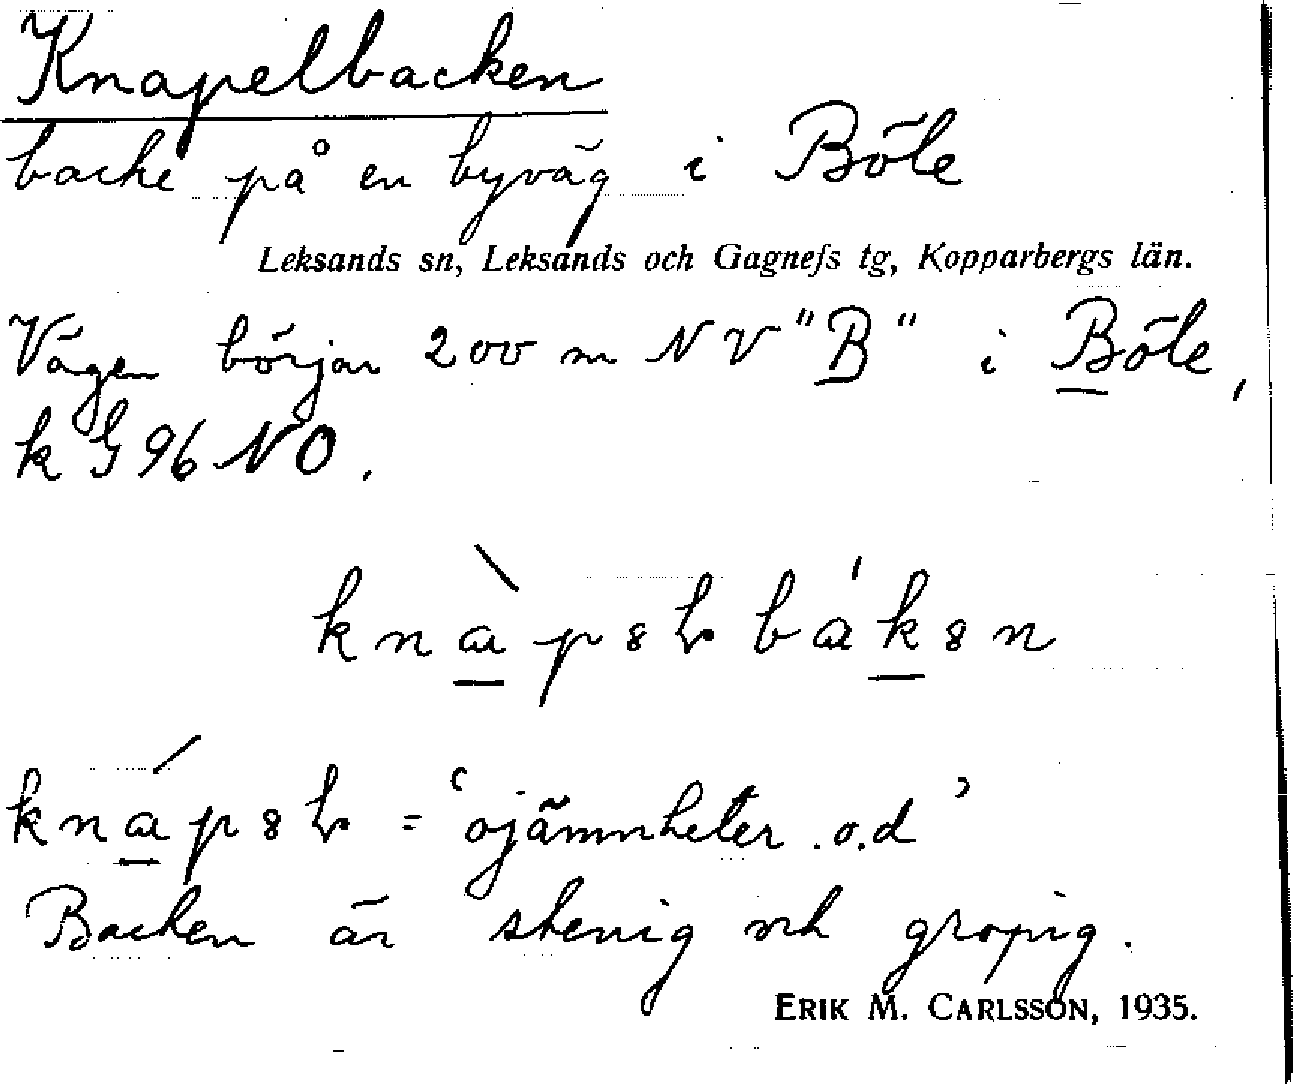 Knapelbacken
backe på en byväg i Böle
Leksands sn, Leksands och Gagnefs tg, Kopparbergs län.
Vägen börjar 200 m NV "B" i Böle,
k G 96 NO.
= 'ojämnheter .o.d'
Backen är stenig och gropig.
ERIK M. CARLSSON, 1935.